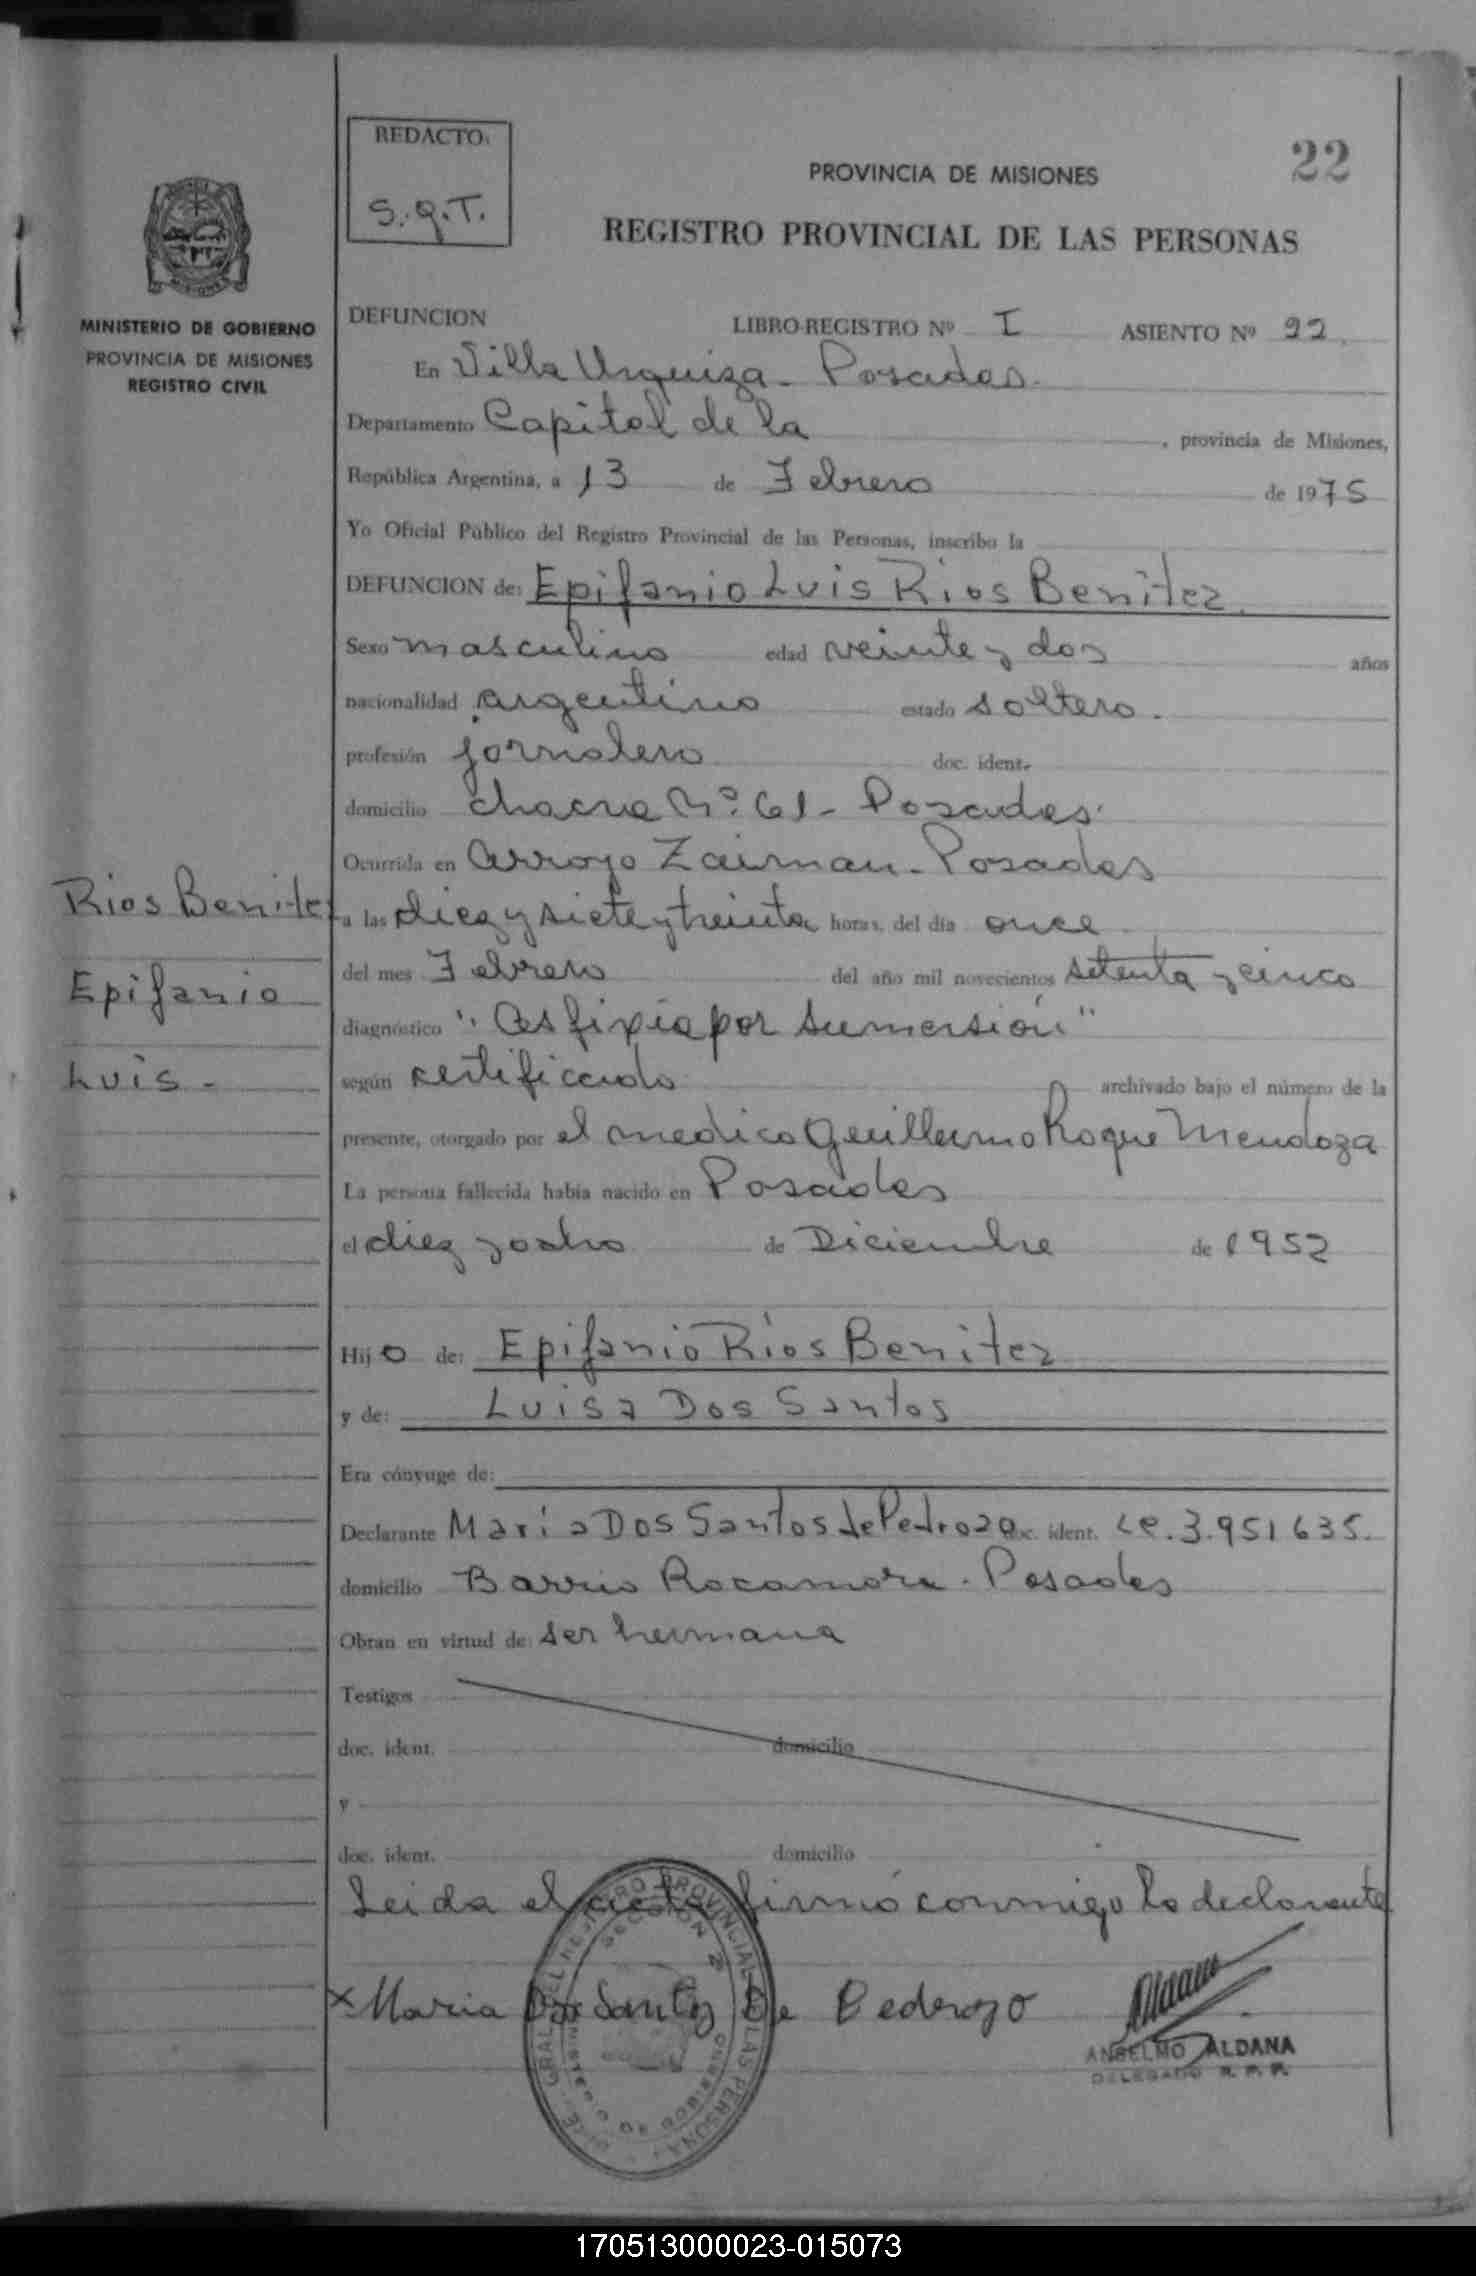 REDACTO:
S.Q.T.
22
PROVINCIA DE MISIONES
REGISTRO PROVINCIAL DE LAS PERSONAS
MISIONES
MINISTERIO DE GOBIERNO
PROVINCIA DE MISIONES
REGISTRO CIVIL
DEFUNCION LIBRO-REGISTRO Nº I ASIENTO Nº 22.
En Villa Urquiza - Posadas.
Departamento Capital de la , provincia de Misiones,
República Argentina, a 13 de Febrero de 1975
Yo Oficial Público del Registro Provincial de las Personas, inscribo la
DEFUNCION de: Epifanio Luis Rios Benitez.
Sexo masculino edad veinte y dos años
nacionalidad argentino estado soltero.
profesión jornalero doc. ident.
domicilio chacra Nº 61 - Posadas.
Ocurrida en arroyo Zaiman - Posadas
a las diez y siete y treinta horas, del día once
del mes Febrero del año mil novecientos setenta y cinco
diagnóstico "Asfixia por sumersión"
según certificado archivado bajo el número de la
presente, otorgado por el medico Guillermo Roque Mendoza
La persona fallecida había nacido en Posadas
el diez y ocho de Diciembre de 1952
Hijo de: Epifanio Ríos Benitez
y de: Luisa Dos Santos
Era cónyuge de:
Declarante María Dos Santos de Pedrozo doc. ident. L.e. 3.951635.
domicilio Barrio Rocamora - Posadas
Obran en virtud de: ser hermana
Testigos
doc. ident. domicilio
y
doc. ident. domicilio
Leida el acta firmó conmigo la declarante
x Maria Dos Santos De Pedrozo
ANSELMO ALDANA
DELEGADO R. P. P.
Rios Benitez
Epifanio
Luis -
REGISTRO PROVINCIAL DE LAS PERSONAS
SECCION 2ª
MINISTERIO DE GOBIERNO
170513000023-015073